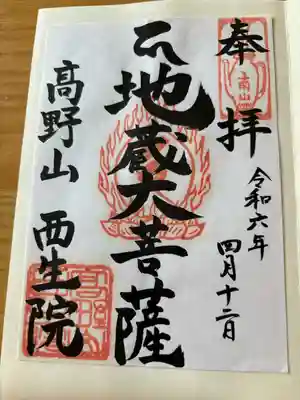 奉拝
令和六年
四月十二日
地蔵大菩薩
髙野山 西生院